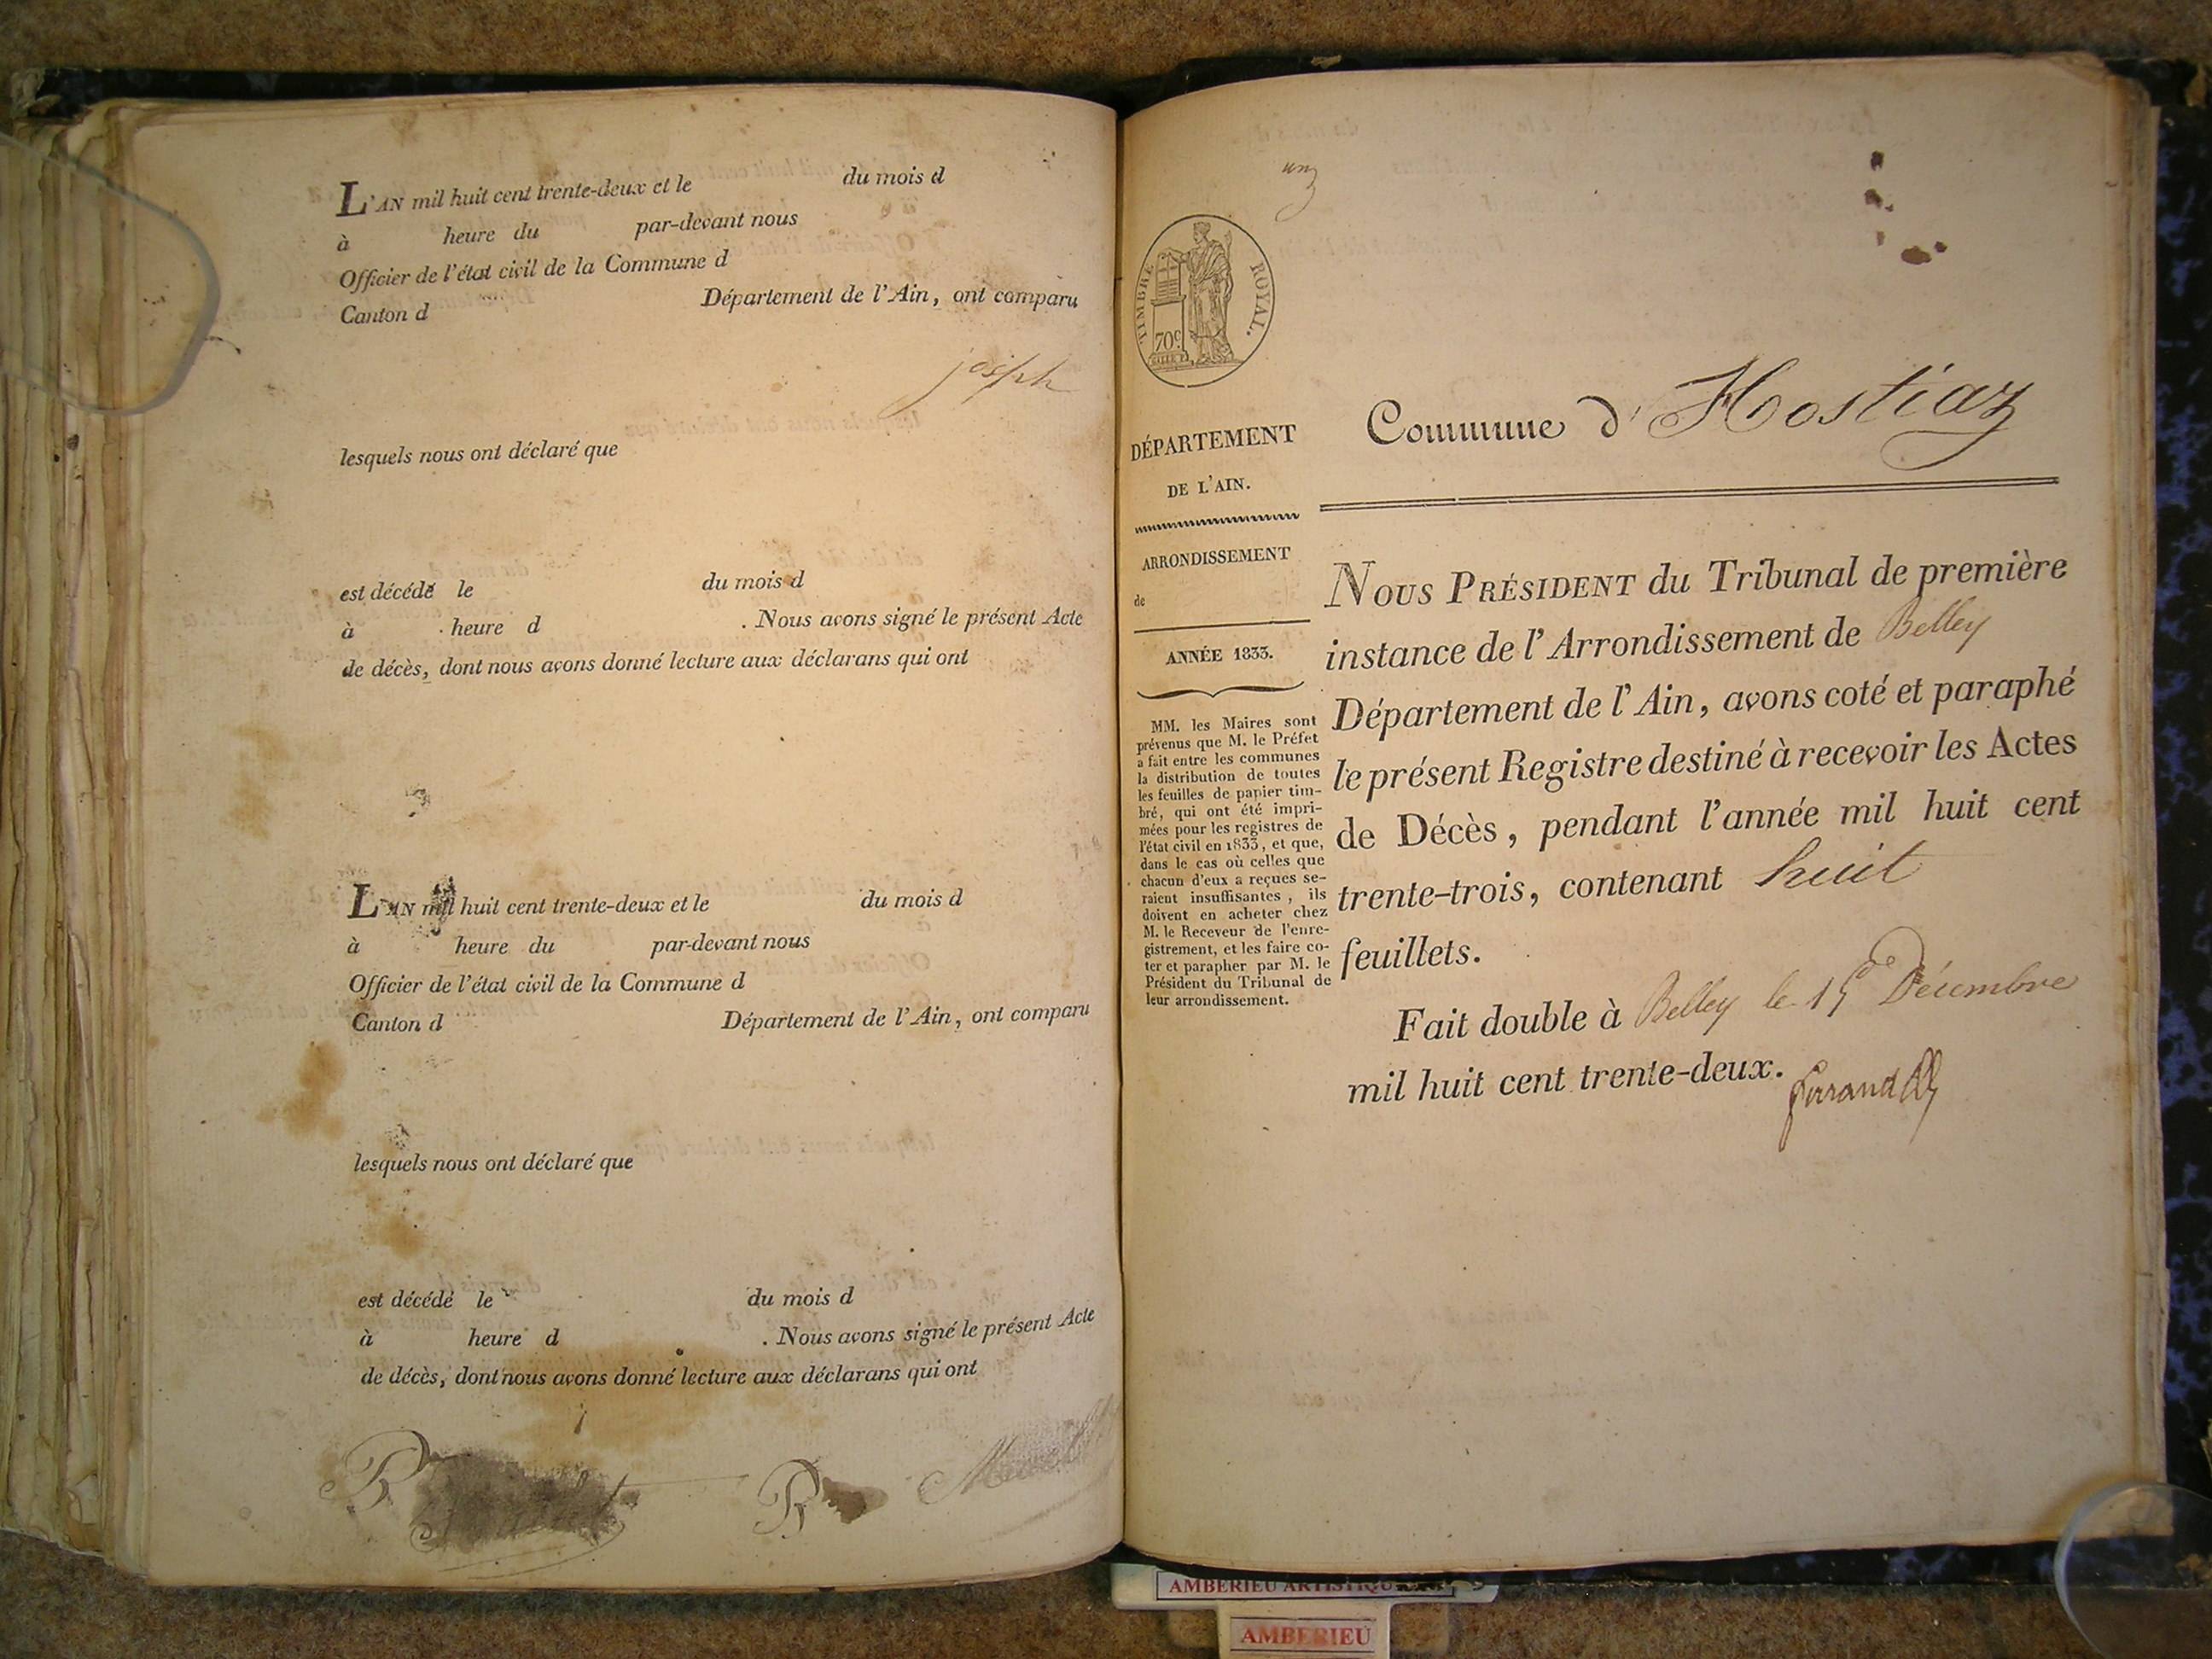 L'AN mil huit cent trente-deux et le du mois d
à heure du par-devant nous
Officier de l'état civil de la Commune d
Canton d Département de l'Ain, ont comparu
joseph
lesquels nous ont déclaré que
est décédé le du mois d
à heure d . Nous avons signé le présent Acte
de décès, dont nous avons donné lecture aux déclarans qui ont
L'AN mil huit cent trente-deux et le du mois d
à heure du par-devant nous
Officier de l'état civil de la Commune d
Canton d Département de l'Ain, ont comparu
lesquels nous ont déclaré que
est décédé le du mois d
à heure d . Nous avons signé le présent Acte
de décès, dont nous avons donné lecture aux déclarans qui ont
TIMBRE ROYAL.
70c
DÉPARTEMENT
DE L'AIN.
ARRONDISSEMENT
de
ANNÉE 1833.
MM. les Maires sont
prévenus que M. le Préfet
a fait entre les communes
la distribution de toutes
les feuilles de papier tim-
bré, qui ont été impri-
mées pour les registres de
l'état civil en 1833, et que,
dans le cas où celles que
chacun d'eux a reçues se-
raient insuffisantes, ils
doivent en acheter chez
M. le Receveur de l'enre-
gistrement, et les faire co-
ter et parapher par M. le
Président du Tribunal de
leur arrondissement.
Commune d'Hostiaz
NOUS PRÉSIDENT du Tribunal de première
instance de l'Arrondissement de Belley
Département de l'Ain, avons coté et paraphé
le présent Registre destiné à recevoir les Actes
de Décès, pendant l'année mil huit cent
trente-trois, contenant huit
feuillets.
Fait double à Belley le 15 Décembre
mil huit cent trente-deux.
AMBERIEU ARTISTIQUE
AMBERIEU